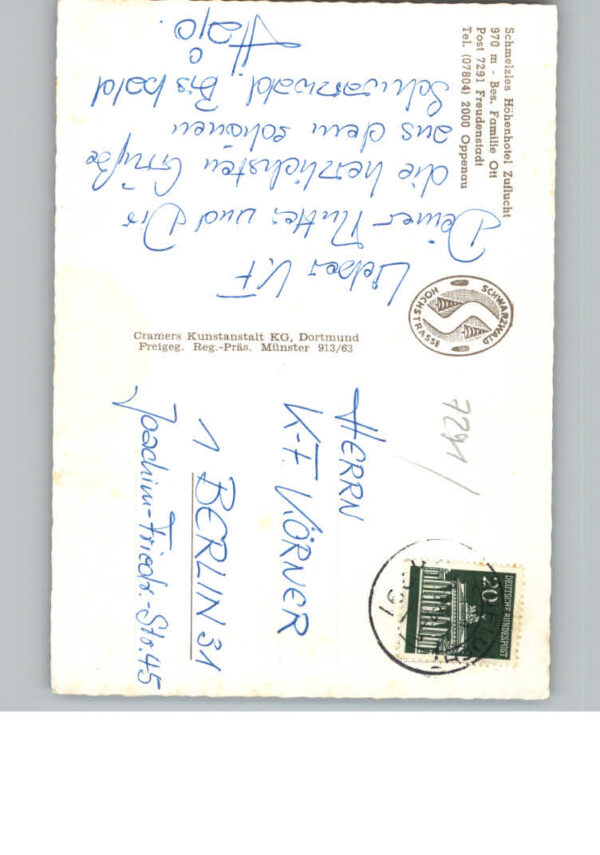 Schmelzles Höhenhotel Zuflucht
970 m - Bes. Familie Ott
Post 7291 Freudenstadt
Tel. (07804) 2000 Oppenau
SCHWARZWALD
HOCHSTRASSE
Lieber K.F
Deiner Mutter und Dir
die herzlichsten Grüße
aus dem schönen
Schwarzwald. Bis bald
Hajo.
Cramers Kunstanstalt KG, Dortmund
Freigeg. Reg.-Präs. Münster 913/63
7291/
20
DEUTSCHE BUNDESPOST
HERRN
K-F. KÖRNER
1 BERLIN 31
Joachim-Friedr.-Str. 45